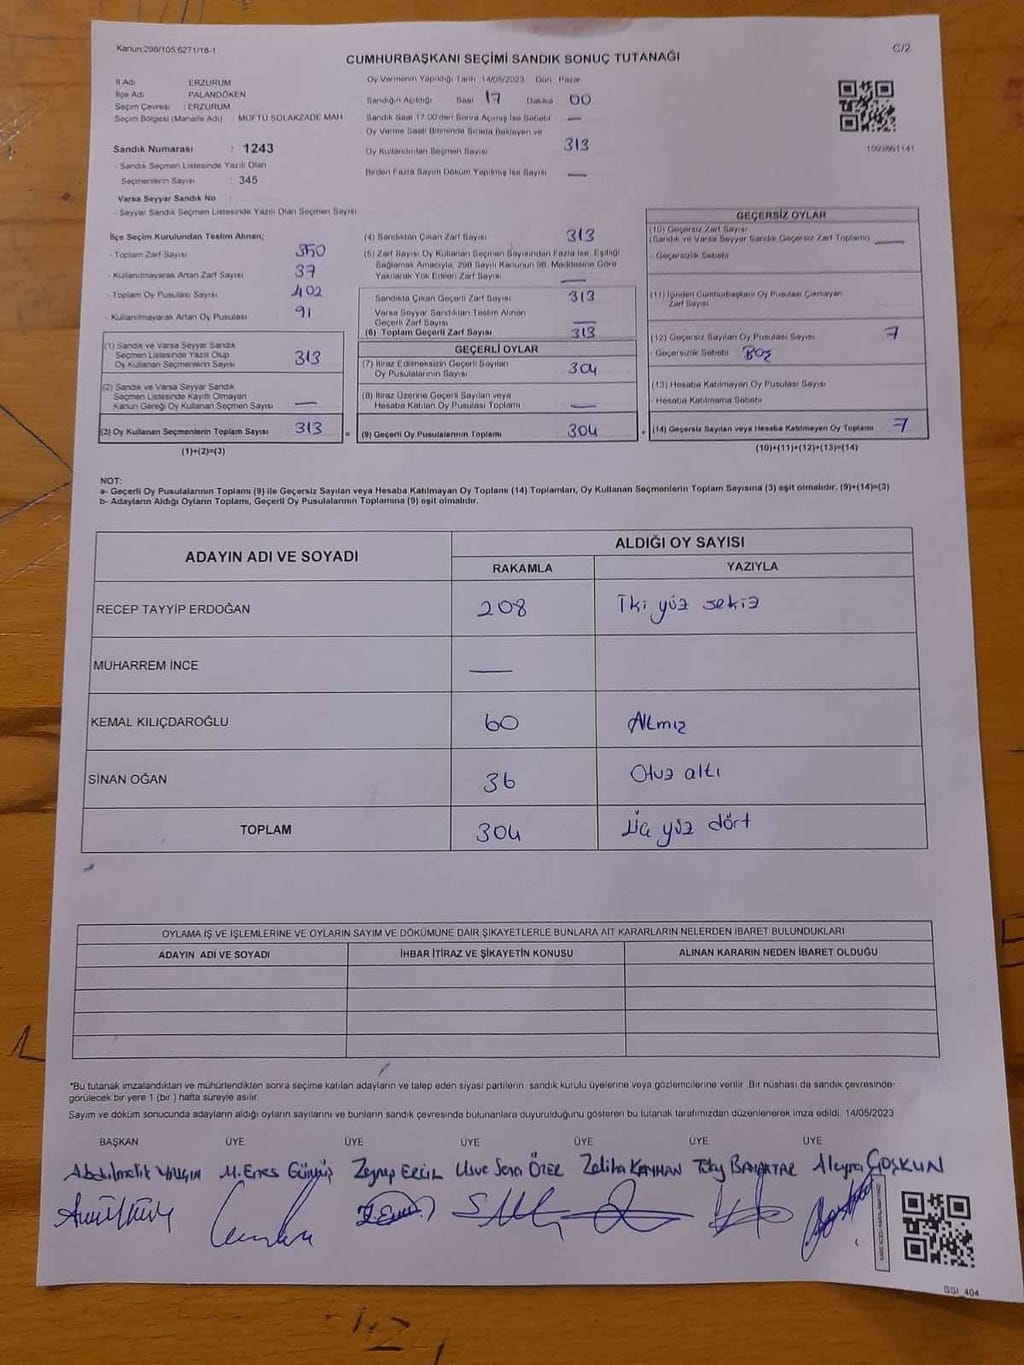 Kanun:298/105,6271/18-1
C/2
CUMHURBAŞKANI SEÇİMİ SANDIK SONUÇ TUTANAĞI
İl Adı ERZURUM
İlçe Adı PALANDÖKEN
Seçim Çevresi : ERZURUM
Seçim Bölgesi (Mahalle Adı) : MÜFTÜ SOLAKZADE MAH.
Sandık Numarası : 1243
- Sandık Seçmen Listesinde Yazılı Olan
Seçmenlerin Sayısı : 345
Varsa Seyyar Sandık No
- Seyyar Sandık Seçmen Listesinde Yazılı Olan Seçmen Sayısı
Oy Vermenin Yapıldığı Tarih 14/05/2023 Gün Pazar
Sandığın Açıldığı Saat 17 Dakika 00
Sandık Saat 17.00'den Sonra Açılmış İse Sebebi —
Oy Verme Saati Bitiminde Sırada Bekleyen ve
Oy Kullandırılan Seçmen Sayısı 313
Birden Fazla Sayım Döküm Yapılmış İse Sayısı —
1093661141
İlçe Seçim Kurulundan Teslim Alınan;
- Toplam Zarf Sayısı 350
- Kullanılmayarak Artan Zarf Sayısı 37
- Toplam Oy Pusulası Sayısı 402
- Kullanılmayarak Artan Oy Pusulası 91
(1) Sandık ve Varsa Seyyar Sandık
Seçmen Listesinde Yazılı Olup
Oy Kullanan Seçmenlerin Sayısı 313
(2) Sandık ve Varsa Seyyar Sandık
Seçmen Listesinde Kayıtlı Olmayan
Kanun Gereği Oy Kullanan Seçmen Sayısı —
(3) Oy Kullanan Seçmenlerin Toplam Sayısı 313 =
(1)+(2)=(3)
(4) Sandıktan Çıkan Zarf Sayısı 313
(5) Zarf Sayısı Oy Kullanan Seçmen Sayısından Fazla İse, Eşitliği
Sağlamak Amacıyla, 298 Sayılı Kanunun 98. Maddesine Göre
Yakılarak Yok Edilen Zarf Sayısı —
Sandıkta Çıkan Geçerli Zarf Sayısı 313
Varsa Seyyar Sandıktan Teslim Alınan
Geçerli Zarf Sayısı —
(6) Toplam Geçerli Zarf Sayısı 313
GEÇERLİ OYLAR
(7) İtiraz Edilmeksizin Geçerli Sayılan
Oy Pusulalarının Sayısı 304
(8) İtiraz Üzerine Geçerli Sayılan veya
Hesaba Katılan Oy Pusulası Toplamı —
(9) Geçerli Oy Pusulalarının Toplamı 304 +
GEÇERSİZ OYLAR
(10) Geçersiz Zarf Sayısı
(Sandık ve Varsa Seyyar Sandık Geçersiz Zarf Toplamı) —
- Geçersizlik Sebebi
(11) İçinden Cumhurbaşkanı Oy Pusulası Çıkmayan
Zarf Sayısı
(12) Geçersiz Sayılan Oy Pusulası Sayısı 7
- Geçersizlik Sebebi Boş
(13) Hesaba Katılmayan Oy Pusulası Sayısı
- Hesaba Katılmama Sebebi
(14) Geçersiz Sayılan veya Hesaba Katılmayan Oy Toplamı 7
(10)+(11)+(12)+(13)=(14)
NOT:
a- Geçerli Oy Pusulalarının Toplamı (9) ile Geçersiz Sayılan veya Hesaba Katılmayan Oy Toplamı (14) Toplamları, Oy Kullanan Seçmenlerin Toplam Sayısına (3) eşit olmalıdır. (9)+(14)=(3)
b- Adayların Aldığı Oyların Toplamı, Geçerli Oy Pusulalarının Toplamına (9) eşit olmalıdır.
ADAYIN ADI VE SOYADI
ALDIĞI OY SAYISI
RAKAMLA YAZIYLA
RECEP TAYYİP ERDOĞAN 208 İki yüz sekiz
MUHARREM İNCE —
KEMAL KILIÇDAROĞLU 60 Altmış
SİNAN OĞAN 36 Otuz altı
TOPLAM 304 Üç yüz dört
OYLAMA İŞ VE İŞLEMLERİNE VE OYLARIN SAYIM VE DÖKÜMÜNE DAİR ŞİKAYETLERLE BUNLARA AİT KARARLARIN NELERDEN İBARET BULUNDUKLARI
ADAYIN ADI VE SOYADI İHBAR İTİRAZ VE ŞİKAYETİN KONUSU ALINAN KARARIN NEDEN İBARET OLDUĞU
*Bu tutanak imzalandıktan ve mühürlendikten sonra seçime katılan adayların ve talep eden siyasi partilerin sandık kurulu üyelerine veya gözlemcilerine verilir. Bir nüshası da sandık çevresinde
görülecek bir yere 1 (bir ) hafta süreyle asılır.
Sayım ve döküm sonucunda adayların aldığı oyların sayılarını ve bunların sandık çevresinde bulunanlara duyurulduğunu gösteren bu tutanak tarafımızdan düzenlenerek imza edildi. 14/05/2023
BAŞKAN ÜYE ÜYE ÜYE ÜYE ÜYE ÜYE
Abdülmelik M. Enes Zeynep ERCİL ÖZER Zeliha KAYHAN Aleyna COŞKUN
SSI_404